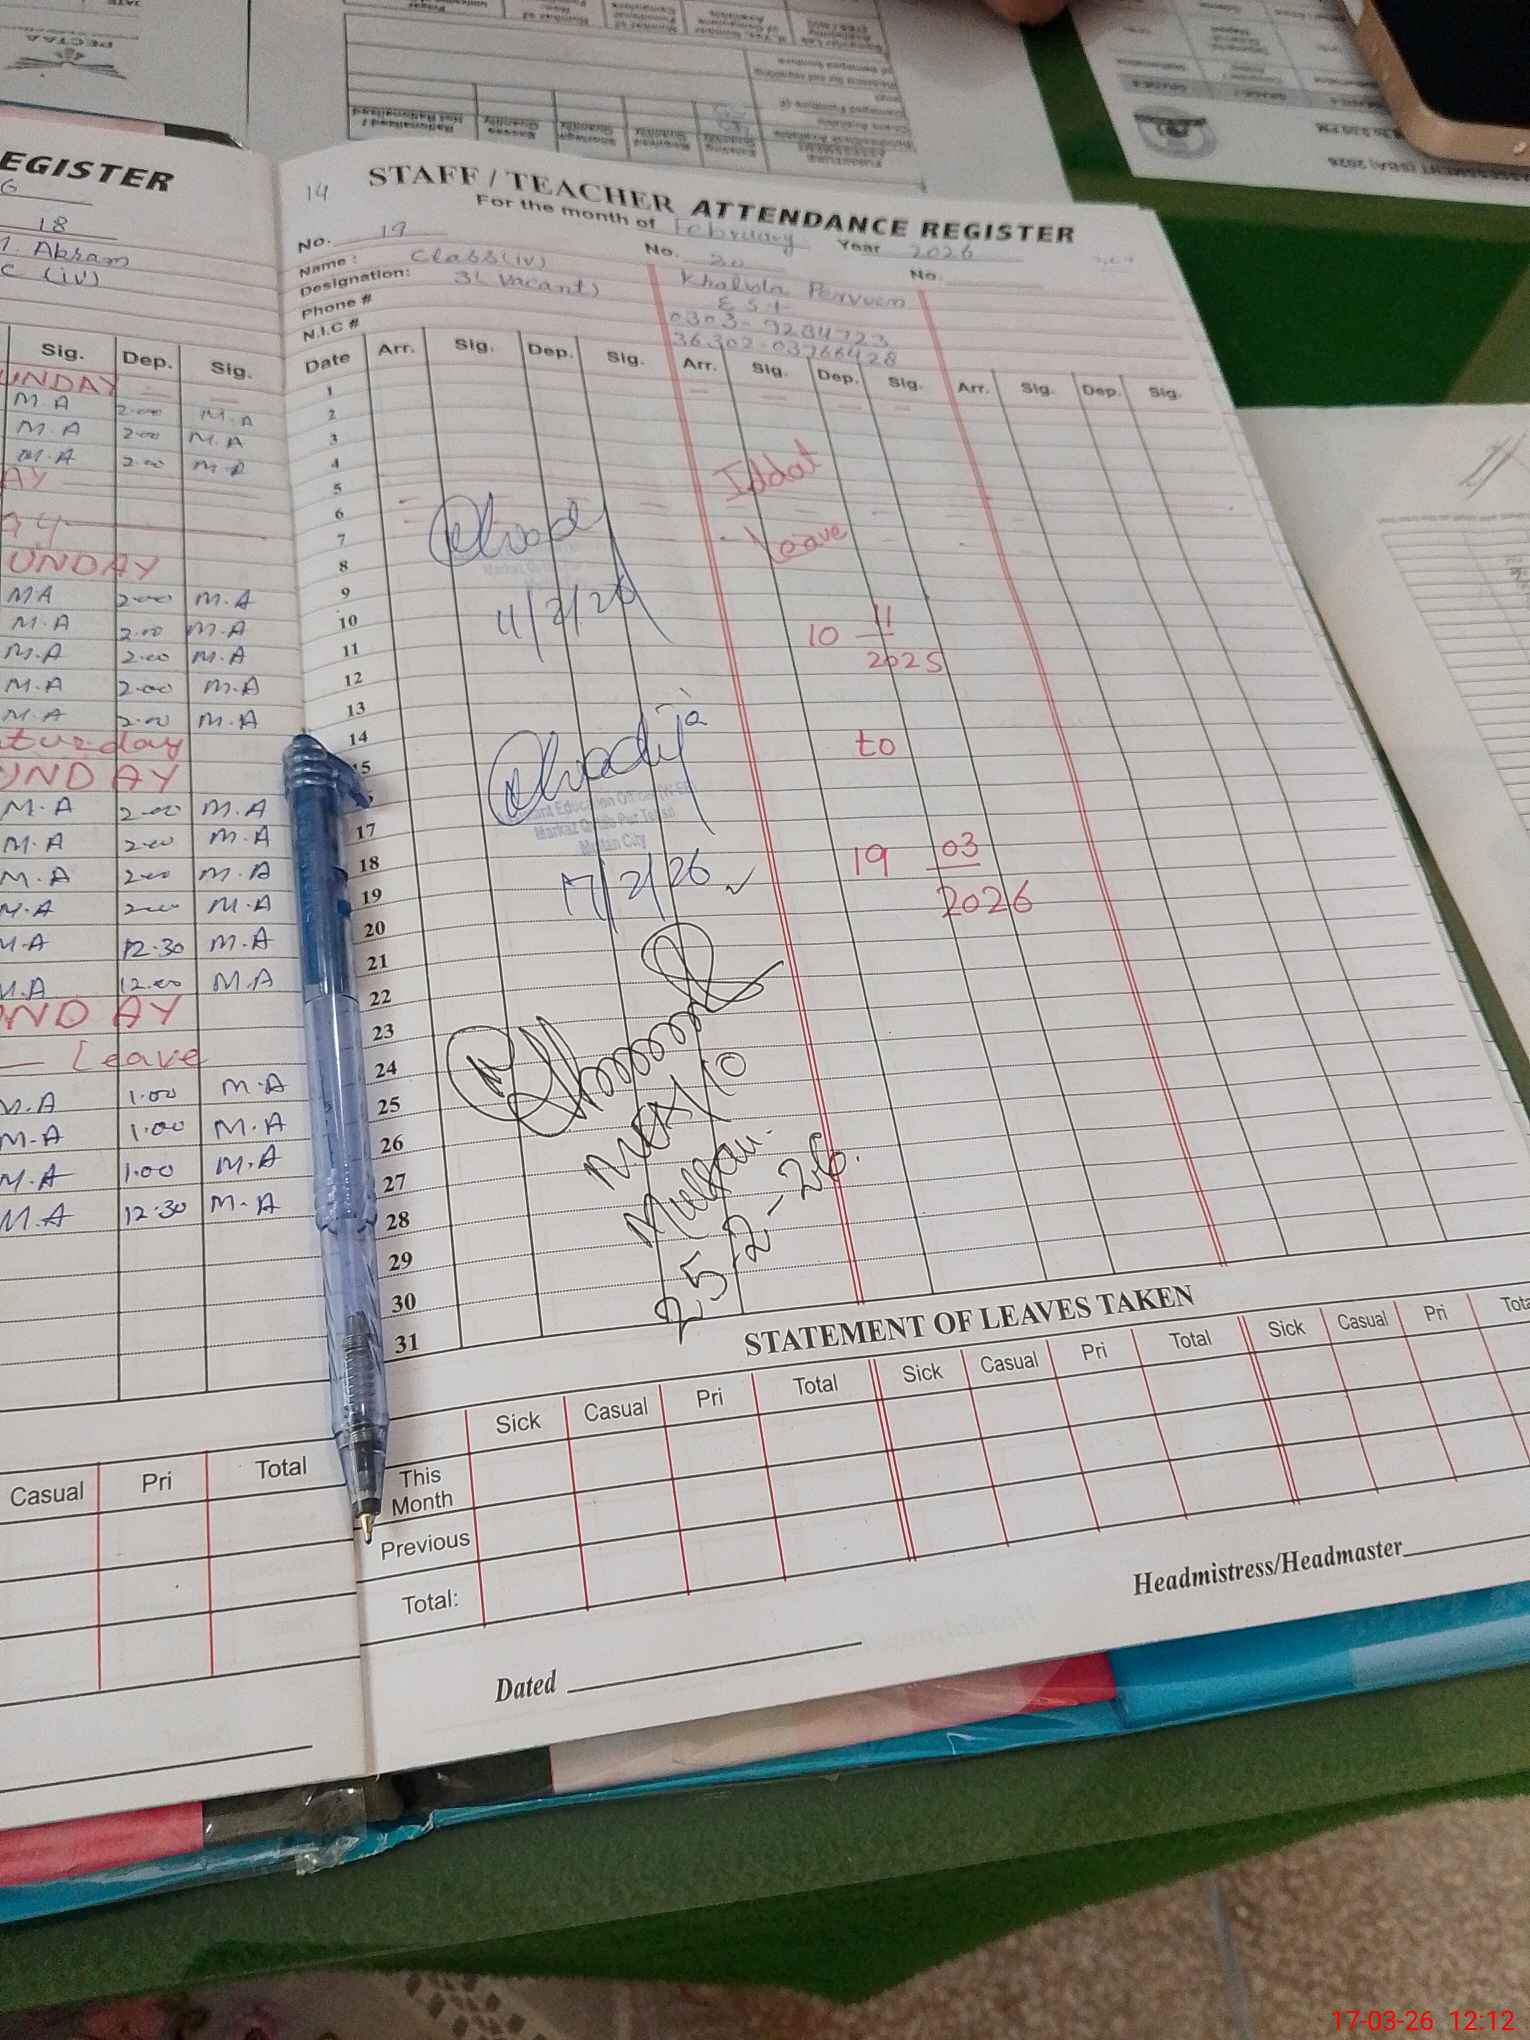 EGISTER
18
Akram
C (iv)
Sig. Dep. Sig.
UNDAY
M.A 2.00 M.A
M.A 2.00 M.A
M.A 2.00 M.A
AY
UNDAY
MA 2.00 M.A
M.A 2.00 M.A
M.A 2.00 M.A
M.A 2.00 M.A
M.A 2.00 M.A
turday
UNDAY
M.A 2.00 M.A
M.A 2.00 M.A
M.A 2.00 M.A
M.A 2.00 M.A
M.A 12.30 M.A
M.A 12.00 M.A
NDAY
Leave
M.A 1.00 M.A
M.A 1.00 M.A
M.A 1.00 M.A
M.A 12.30 M.A
Casual Pri Total
14
STAFF / TEACHER ATTENDANCE REGISTER
For the month of February Year 2026
No. 19 No. 20 No.
Name: Class (iv) Khalida Perveen
Designation: 3 (Vacant) EST
Phone # 0303-9284723
N.I.C # 36302-03766428
Date Arr. Sig. Dep. Sig. Arr. Sig. Dep. Sig. Arr. Sig. Dep. Sig.
1
2
3
4
5
6
7
8
9
10
11
12
13
14
15
17
18
19
20
21
22
23
24
25
26
27
28
29
30
31
Iddat
Leave
10 11
2025
to
19 03
2026
11/2/26
Khadija
Education Officer
Markaz
Multan City
17/2/26
Multan.
25-2-26.
STATEMENT OF LEAVES TAKEN
Sick Casual Pri Total Sick Casual Pri Total Sick Casual Pri Tota
This Month
Previous
Total:
Headmistress/Headmaster
Dated
PECTAA
17-03-26 12:12